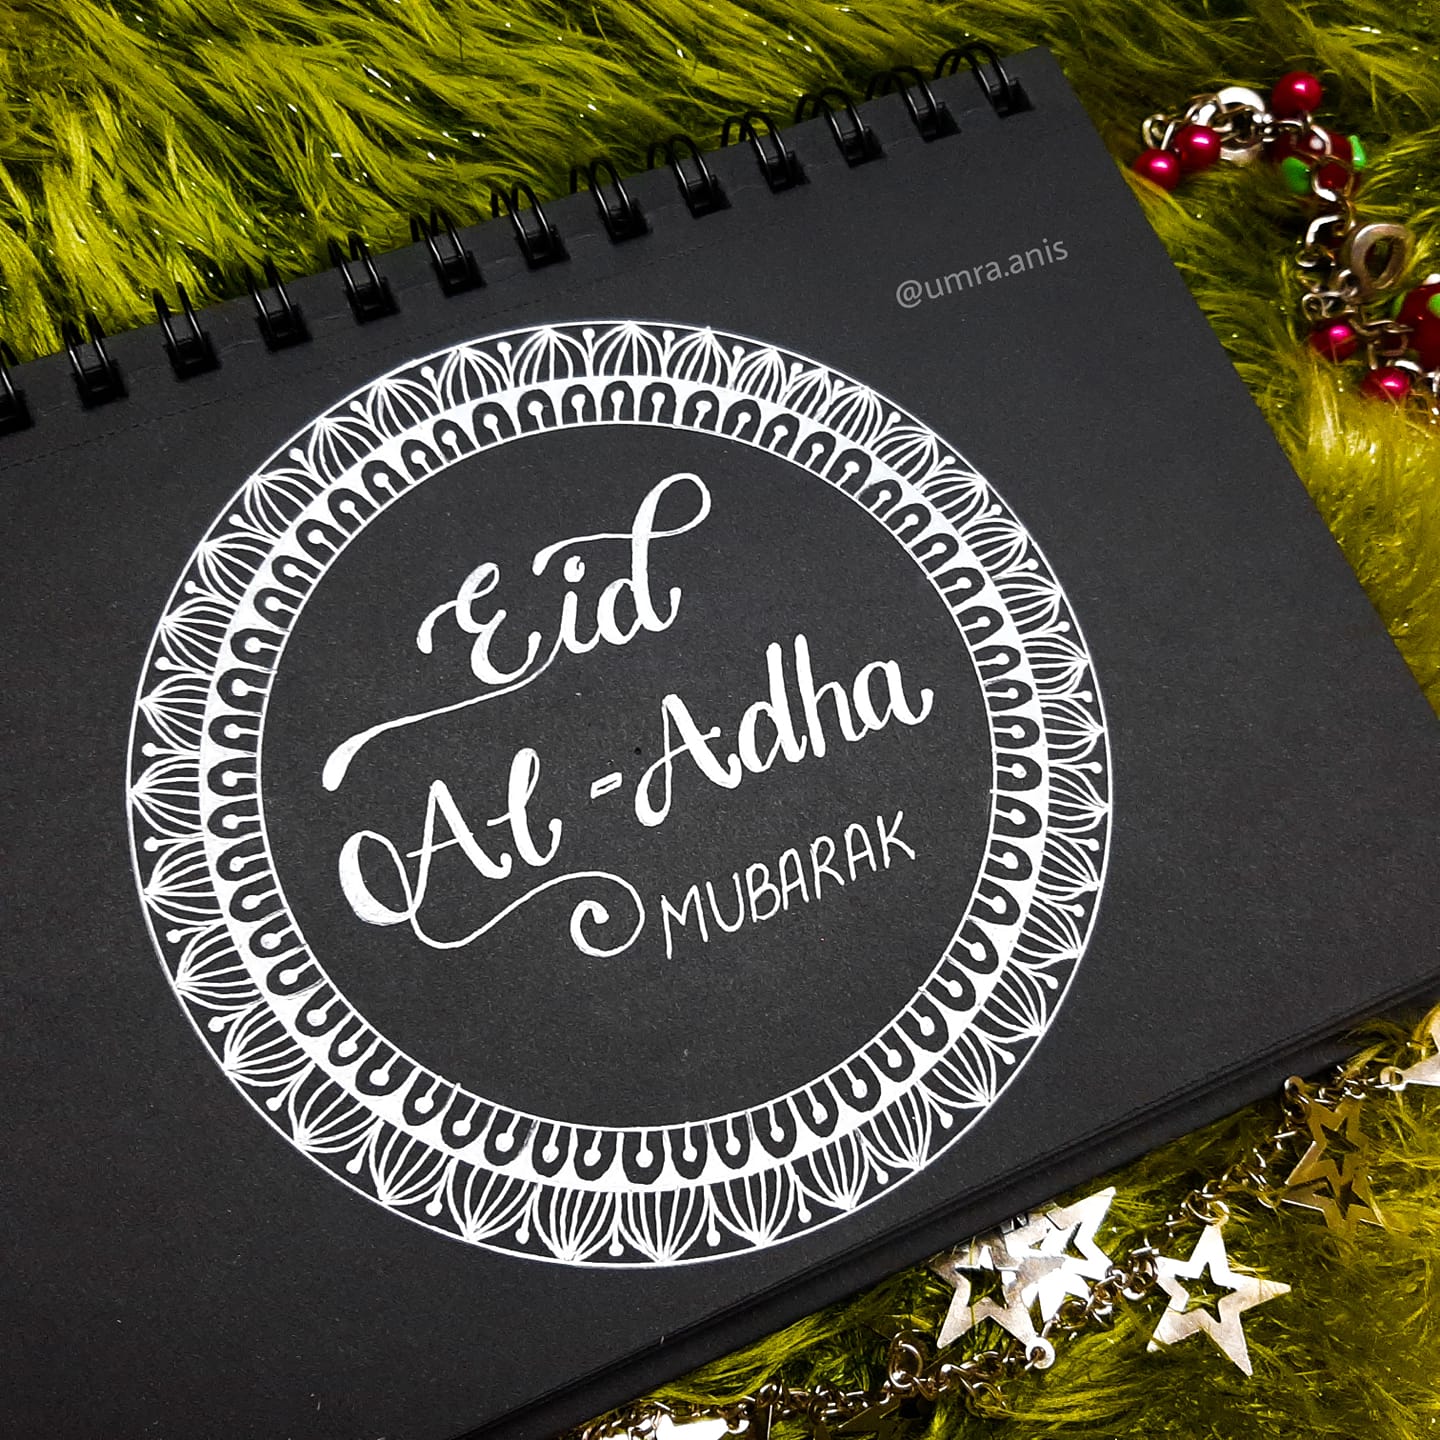 @umra.anis
Eid
Al-Adha
MUBARAK